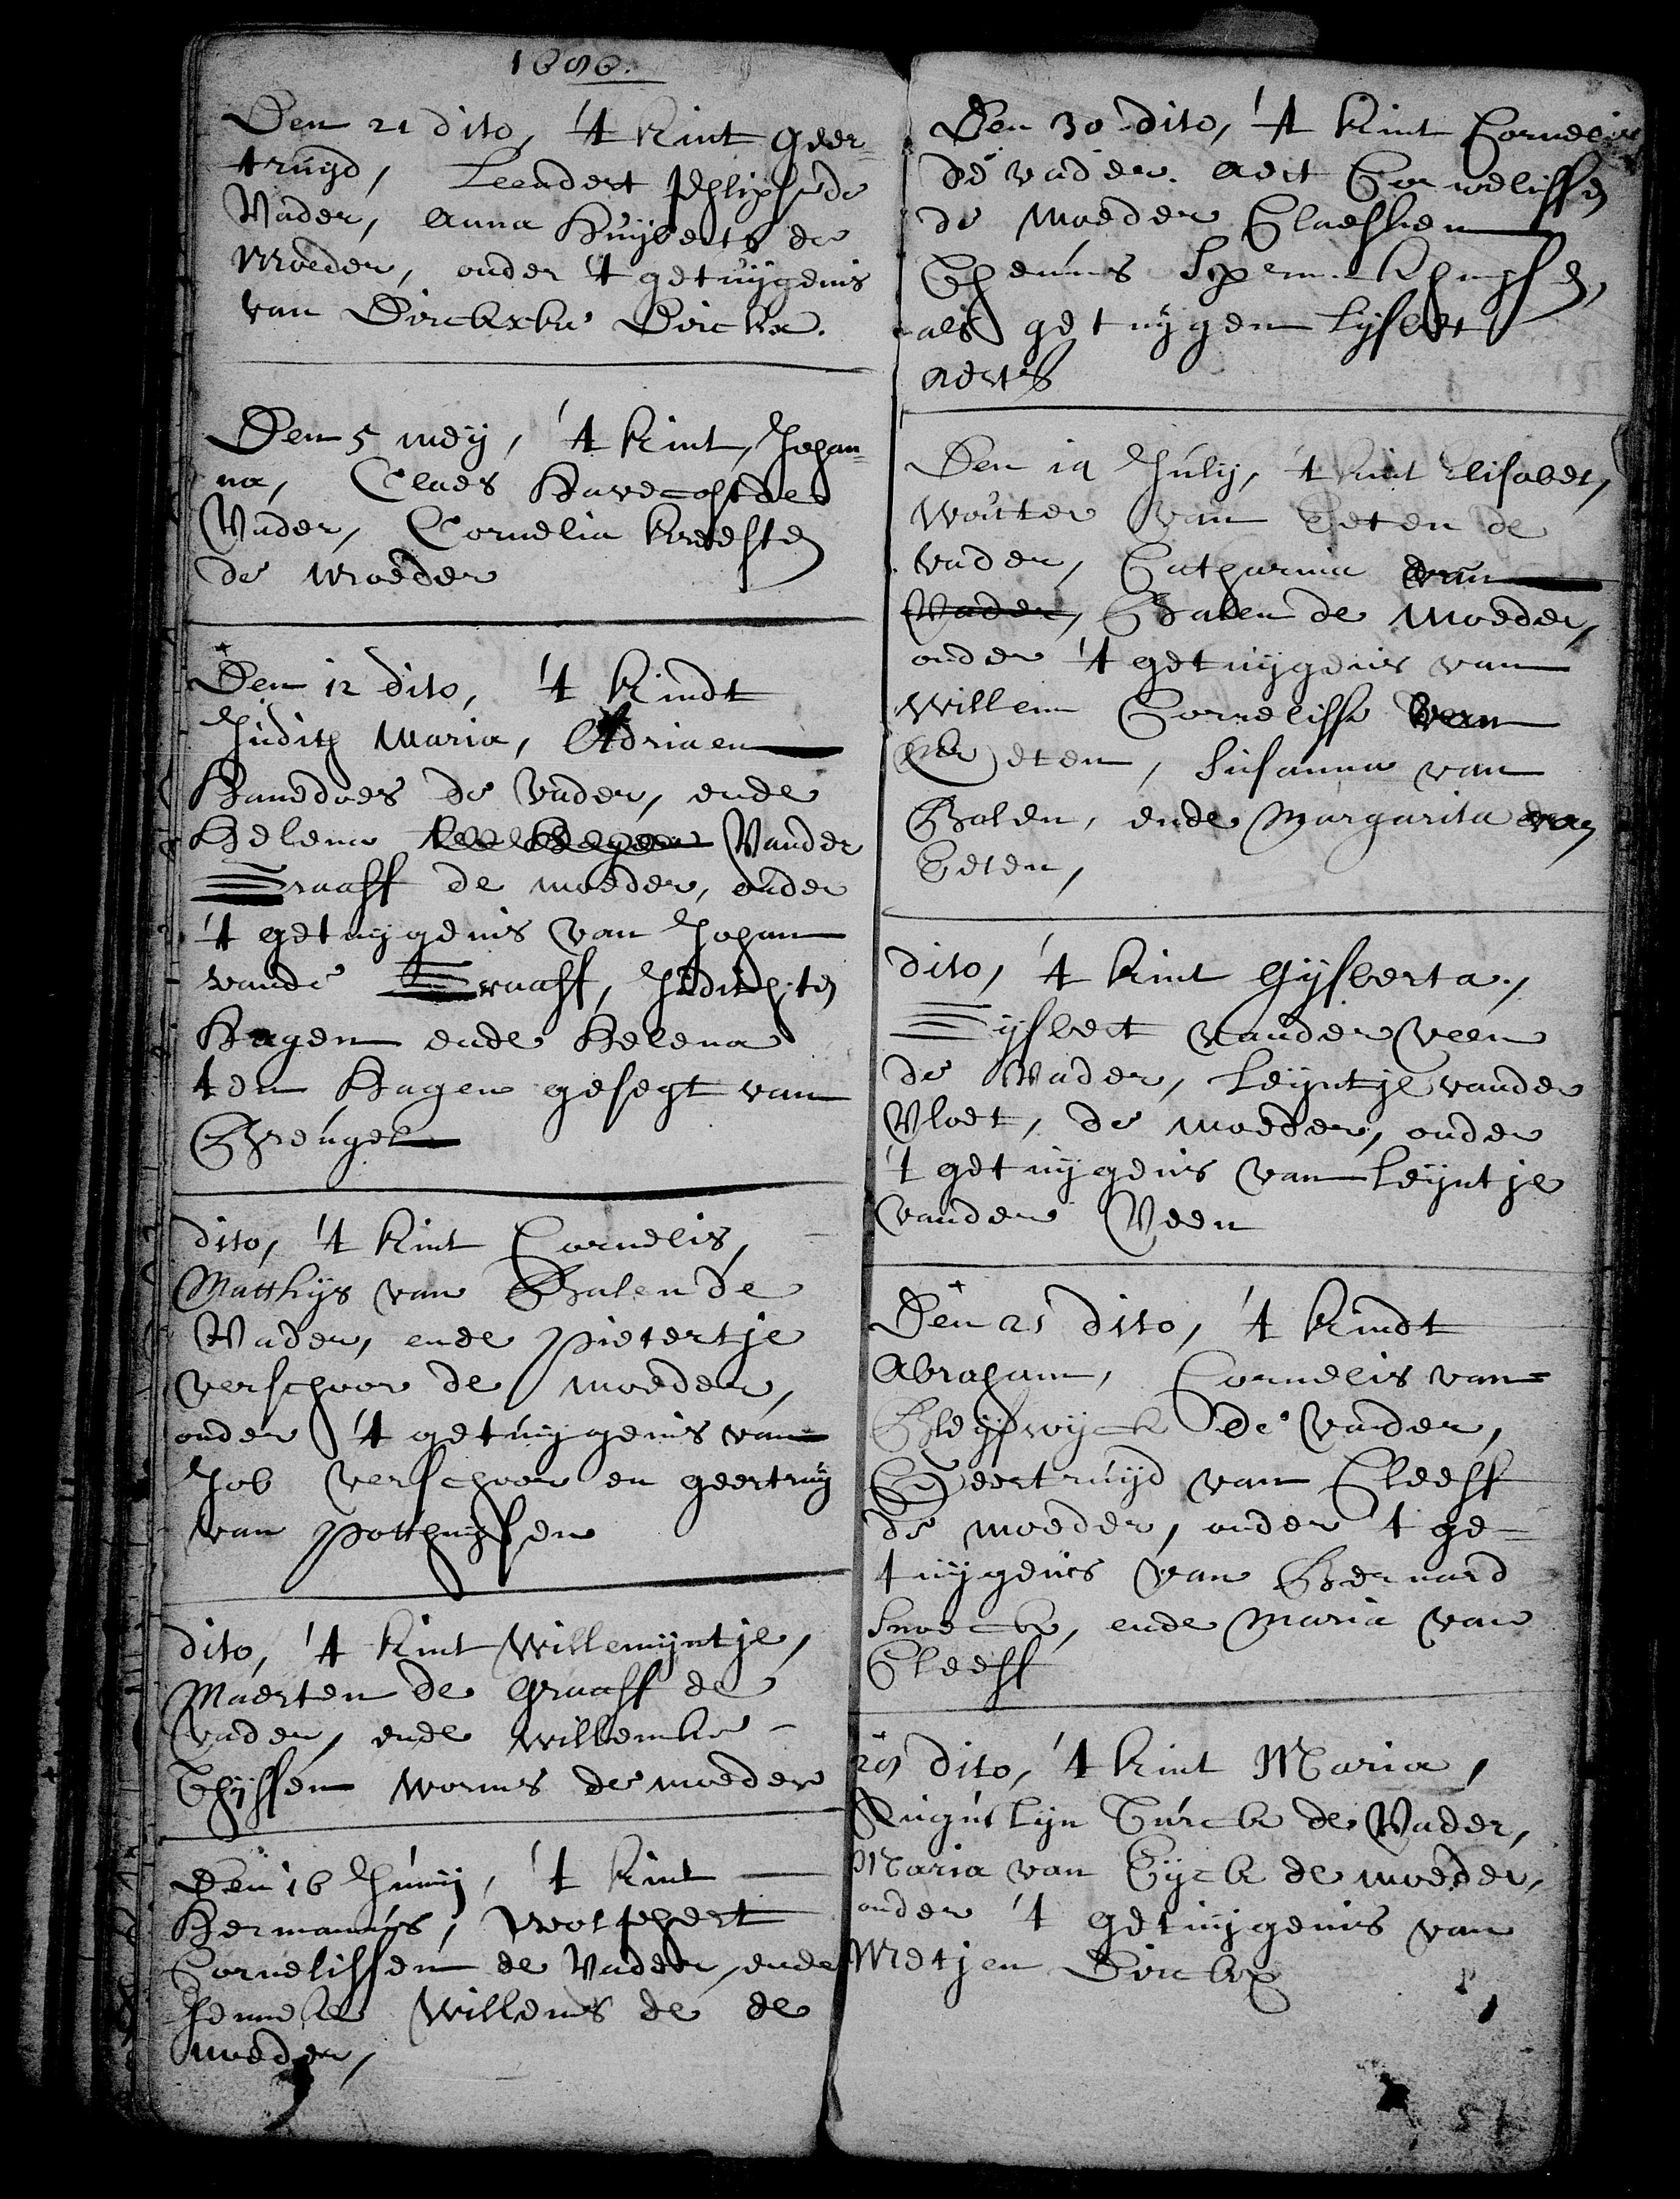 Den 21 dito, 't kint geer-
truijd, Leendert de
Vader, Anna Huijberts de
Moeder, onder 't getuijgenis
van Dirckxke Dirckx.
Den 5 meij, 't kint, Johan-
na, Claes de
Vader, Cornelia
de moeder
Den 12 dito, 't kindt
Judith Maria, Adriaen
de Vader, ende
Helena Vander
Graaff de moeder, onder
't getuijgenis van Johan
vande Graaff, Judith ten
Hagen ende Helena
ten Hagen gesegt van
dito, 't kint Cornelis,
Matthijs van Balen de
Vader, ende Pietertje
verschoor de moeder,
onder 't getuijgenis van
Job verschoor en geertruij
van Potthuijsen
dito, 't kint Willemijntje,
Maerten de Graaff de
vader, ende Willemke
Thijssen worms de moeder
Den 16 Junij, 't kint
Hermannus, Wolphert
Cornelissen de Vader, ende
Jenneke Willems de de
moeder,
Den 30 dito, 't kint Cornelis
de vader. Aert Cornelisse
de moeder Claesken
Theunis
als getuijgen Lijsbet
Aerts
Den 14 Julij, 't kint Elisabet,
Wouter van Eeten de
vader, Catharina van
Vader, Balen de Moeder,
onder 't getuijgenis van
Willem Cornelisse van
Eeten, Susanna van
Balen, ende Margarita van
Eeten,
dito, 't kint Gijsberta,
Gijsbert vander Veen
de Vader, Leijntje vander
Vloet, de moeder, onder
't getuijgenis van Leijntje
vander Veen
Den 21 dito, 't kindt
Abraham, Cornelis van
Bleijswijck de vader,
Geertruijd van Cleeff
de moeder, onder 't ge-
tuijgenis van Bernard
Snoeck, ende Maria van
Cleeff
dito, 't kint Maria,
Augustijn Turck de Vader,
Maria van Eijck de moeder,
onder 't getuijgenis van
Metjen Dirckx